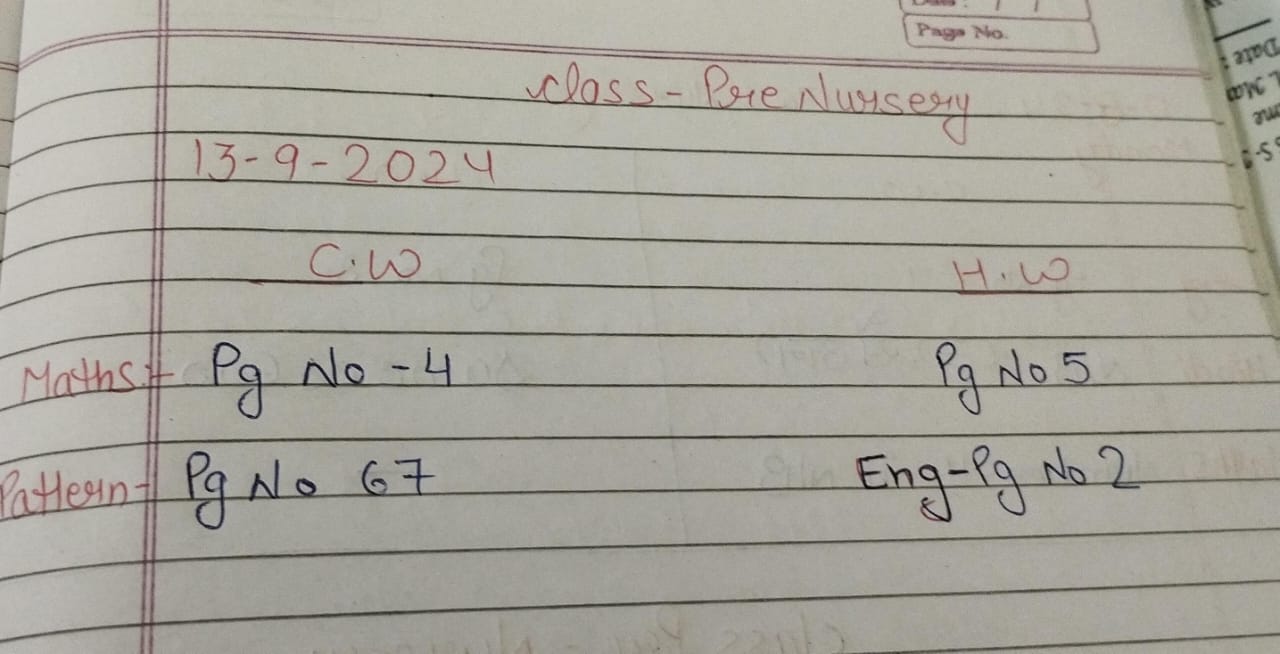 Page No.
Class - Pre Nursery
13-9-2024
C.W H.W
Maths:- Pg No - 4 Pg No 5
Pattern- Pg No 67 Eng-Pg No 2
Date :